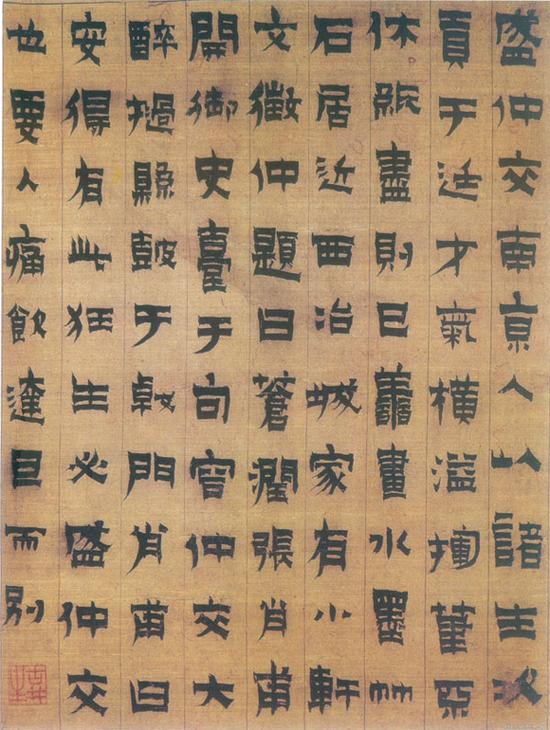 盛仲交南京人以諸生次
貢于廷才氣橫溢揮筆不
休紙盡則已善畫水墨竹
石居近西治城家有小軒
文徵仲題曰蒼潤張肖甫
開御史臺于句容仲交大
醉撾縣鼓于戟門肖甫曰
安得有此狂生必盛仲交
也要入痛飲達旦而別